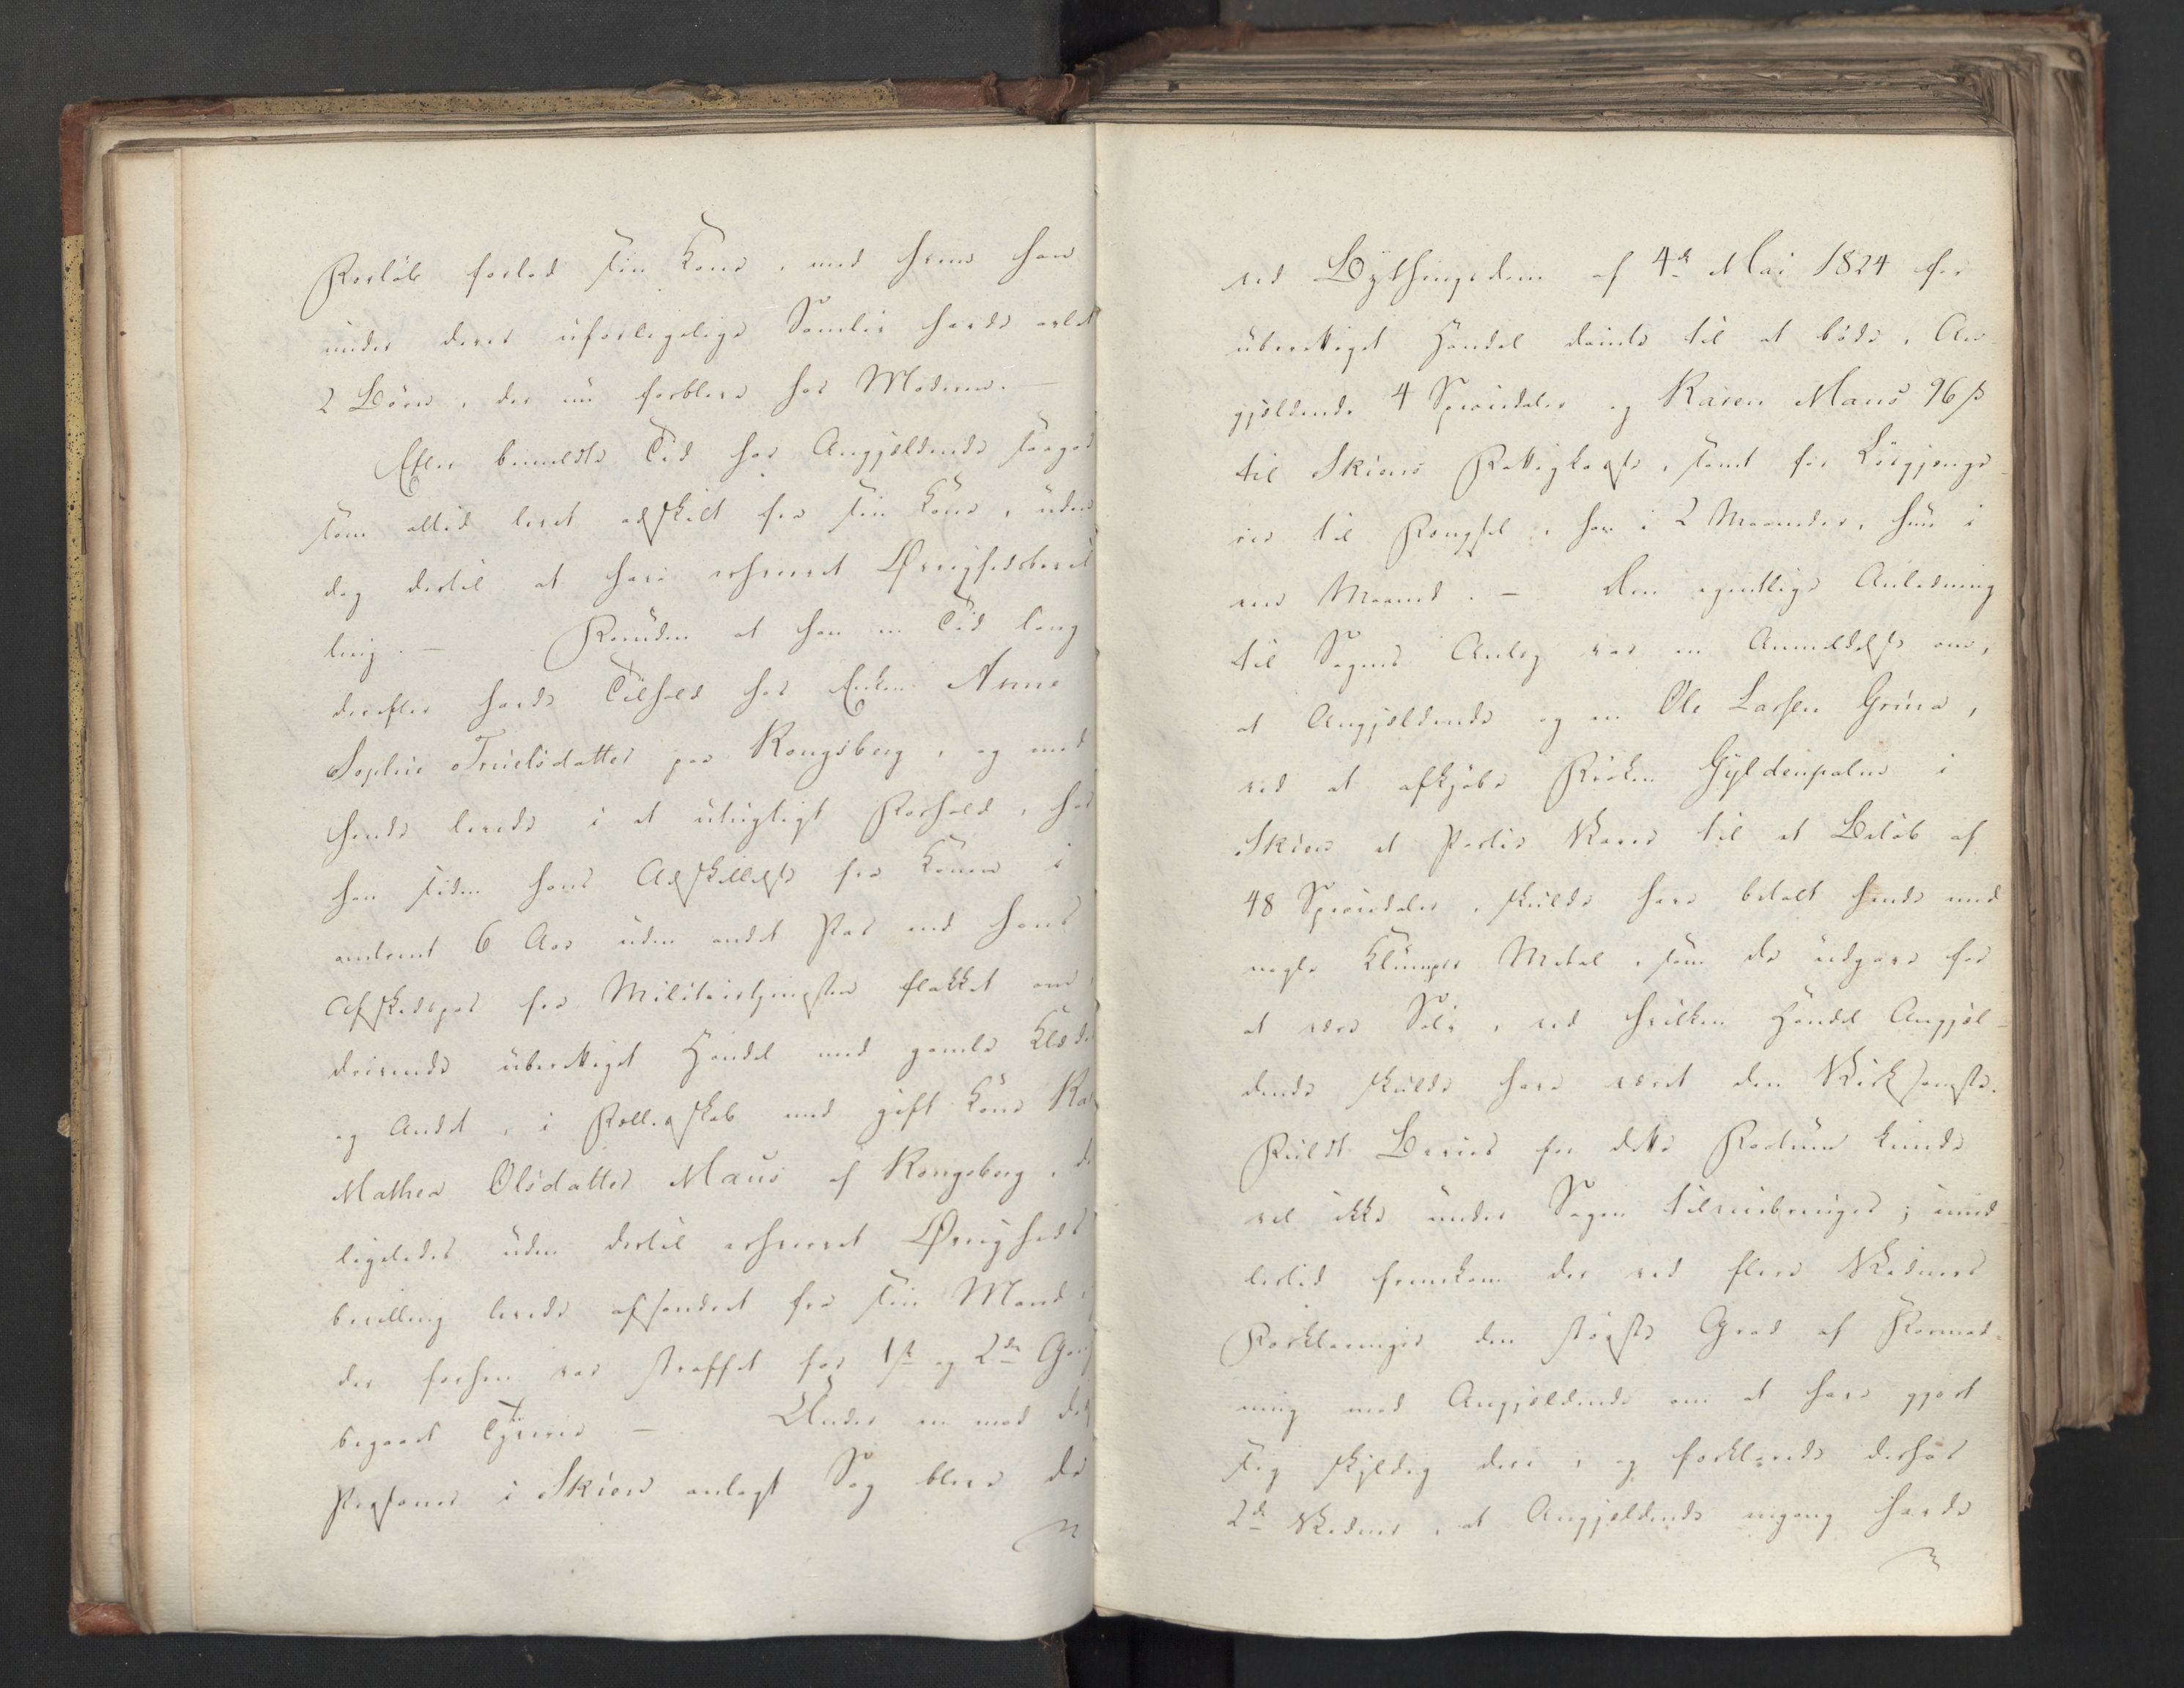 Forløb forlod sin Kone, med hvem han
under deres uforligelige Samliv havde avlet
2 Børn, der nu forbleve hos Moderen. —
Efter bemeldte Tid har Angjeldende saagodt
som altid levet adskilt fra sin Kone, uden
dog dertil at have erhvervet Øvrighedsbevil
ling. — Foruden at han en Tid lang
derefter havde Tilhold hos Enken Anne
Sophie Truelsdatter paa Kongsberg, og med
hende levede i et utugtigt Forhold, har
han siden hans Adskillelse fra Konen i
omtrent 6 Aar uden andet Pas end hans
Afskedspas fra Militairtjenesten flakket om,
drivende uberettiget Handel med gamle Klæder
og Andet, i Følleskab med gift Kone
Mathea Olsdatter Maus af Kongsberg, der
ligeledes uden dertil erhvervet Øvrigheds
bevilling levede afsondret fra sin Mand,
der forhen var straffet for 1ste og 2den Gang
begaaet Tyverie — Under en mod disse
Personer i Skien anlagt Sag bleve de
ved Bythingsdom af 4de Mai 1824 for
uberettiget Handel dømte til at bøde, An-
gjeldende 4 Speciedaler og Karen Maus 96 ß
til Skiens Fattigkasse, samt for Løsgjænge-
rie til Fængsel, han i 2 Maaneder, hun i
een Maaned. — Den egentlige Anledning
til Sagens Anlæg var en Anmeldelse om,
at Angjeldende og en Ole Larsen Grüva,
ved at afkjøbe Frøken Gyldenpalm i
Skien et Partie Varer til et Beløb af
48 Speciedaler, skulde have betalt hende med
nogle Klumper Metal, som de udgave for
at være Sølv, ved hvilken Handel Angjel-
dende skulde have været den Virksomste.
Fuldt Beviis for dette Factum kunde
vel ikke under Sagen tilveiebringes; imid-
lertid fremkom der ved flere Vidners
Forklaringer den største Grad af Formod-
ning mod Angjeldende om at have gjort
sig skyldig deri, og forklarede derhos
2de Vidner, at Angjeldende engang havde